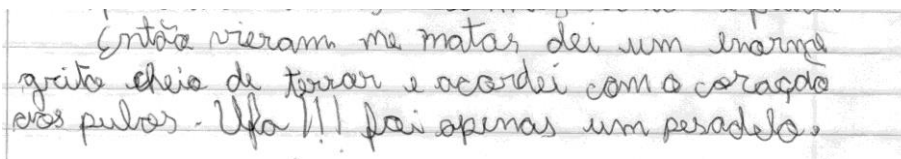 Então vieram me matar dei um enorme
grito cheio de terror e acordei com o coração
aos pulos. Ufa!!! foi apenas um pesadelo.